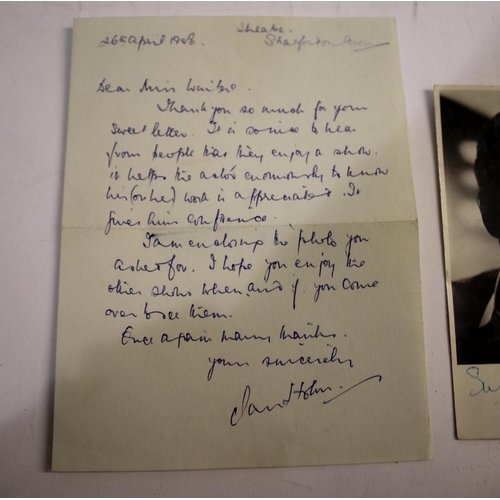 Theatre.
26th April 1958. Stratford on Avon
Dear Miss
Thank you so much for your
sweet letter. It is so nice to hear
from people that they enjoy a show.
it helps the actor enormously to know
his (or her) work is appreciated. It
gives him confidence.
I am enclosing the photo you
asked for. I hope you enjoy the
other shows when and if you come
over to see them.
Once again many thanks.
yours sincerely